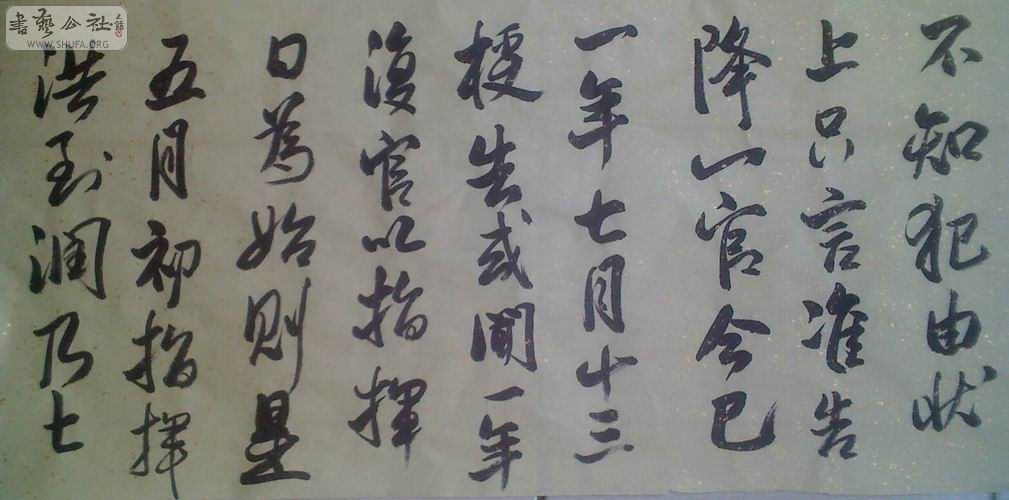 不知犯由状
上只言准告
降一官今已
一年七月十三
授告或闻一年
復官以指挥
日為始则是
五月初指挥
洪到润乃七
書藝公社
WWW.SHUFA.ORG